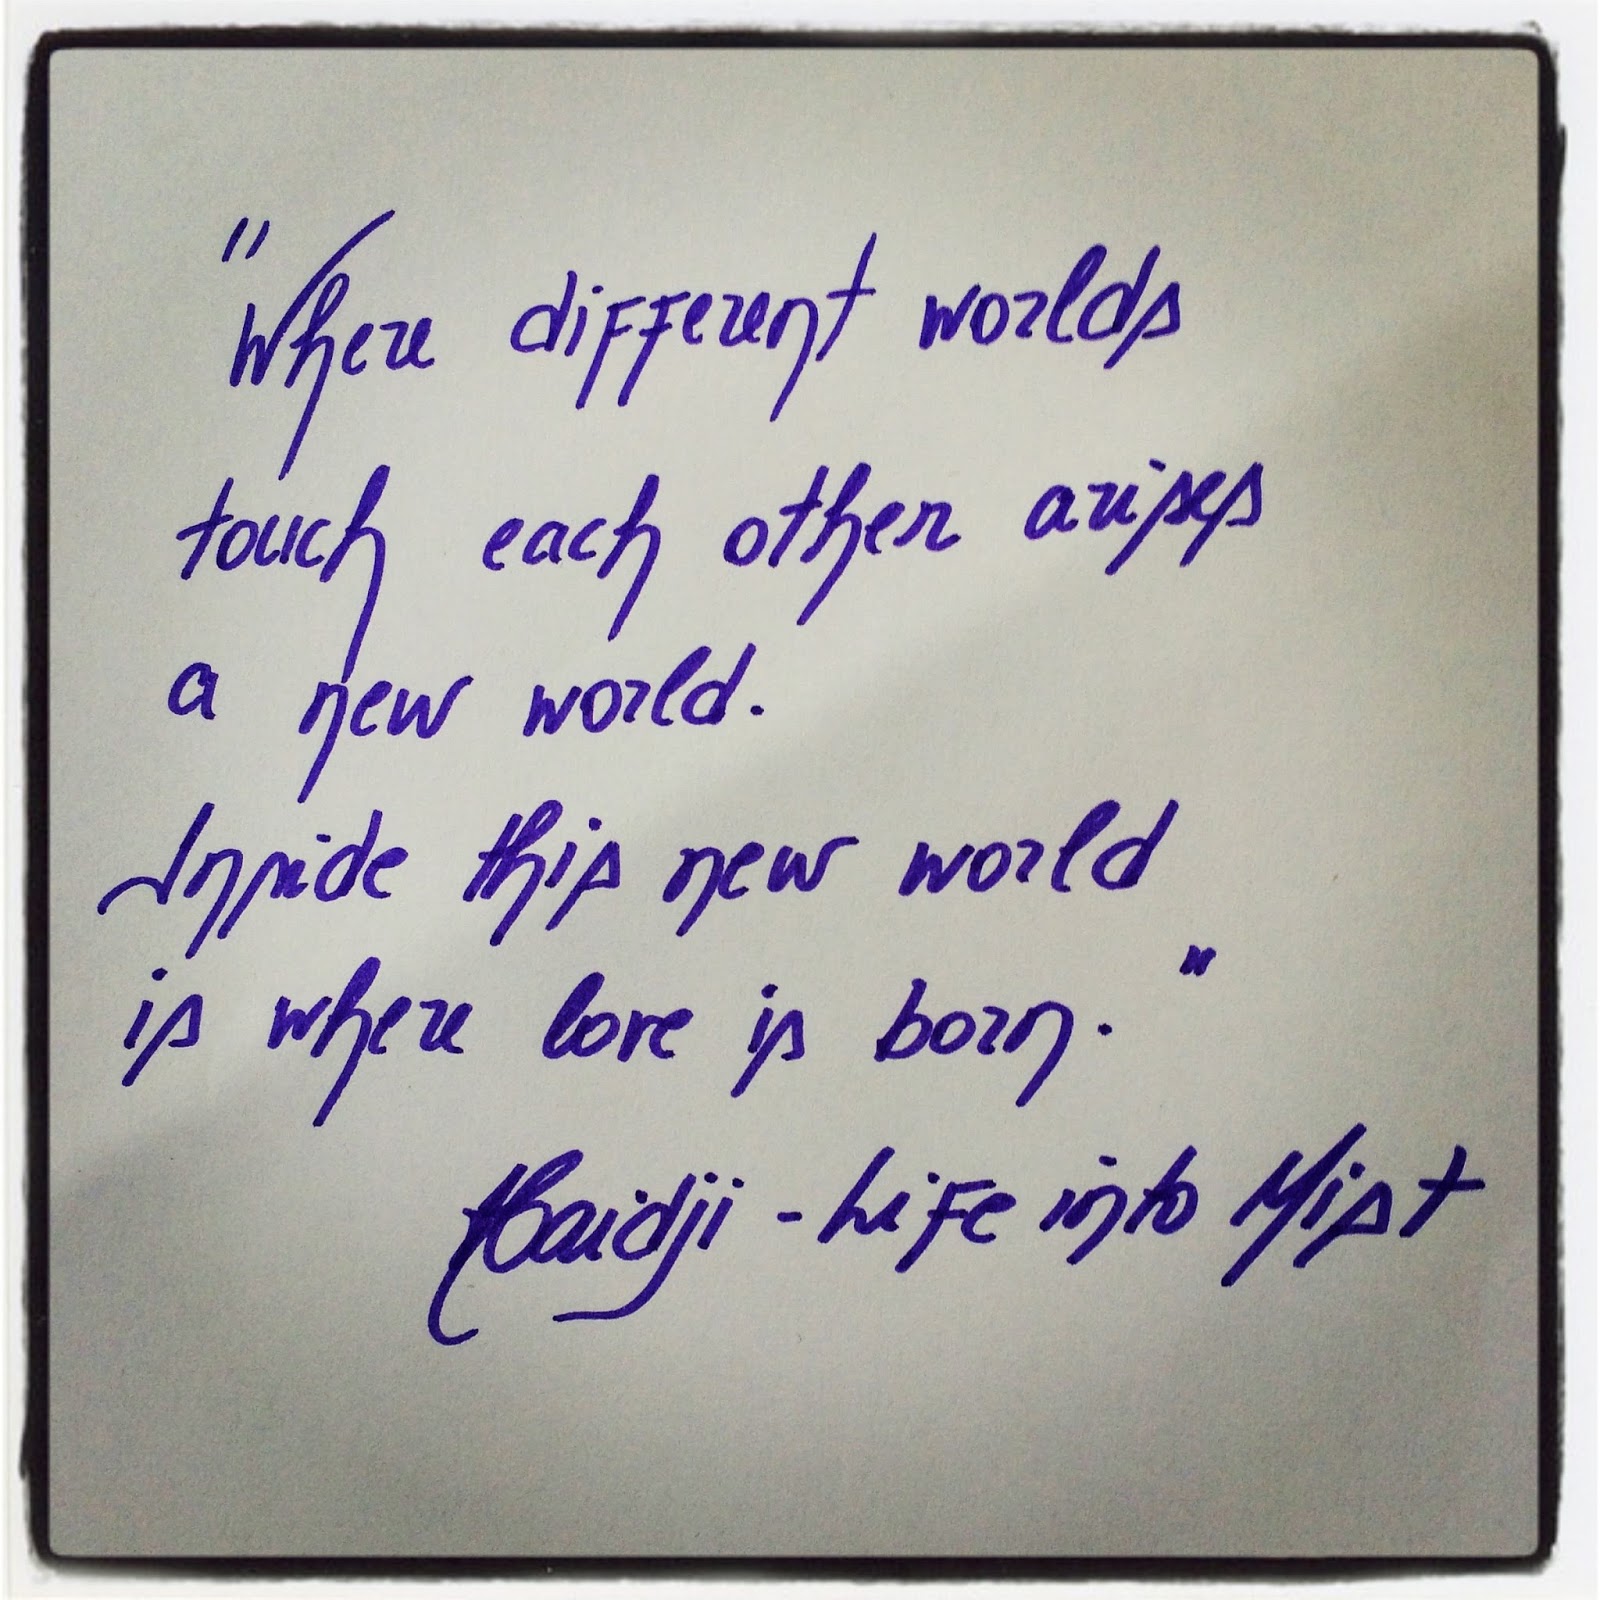 "Where different worlds
touch each other arises
a new world.
Inside this new world
is where love is born."
Haidji - Life into Mist